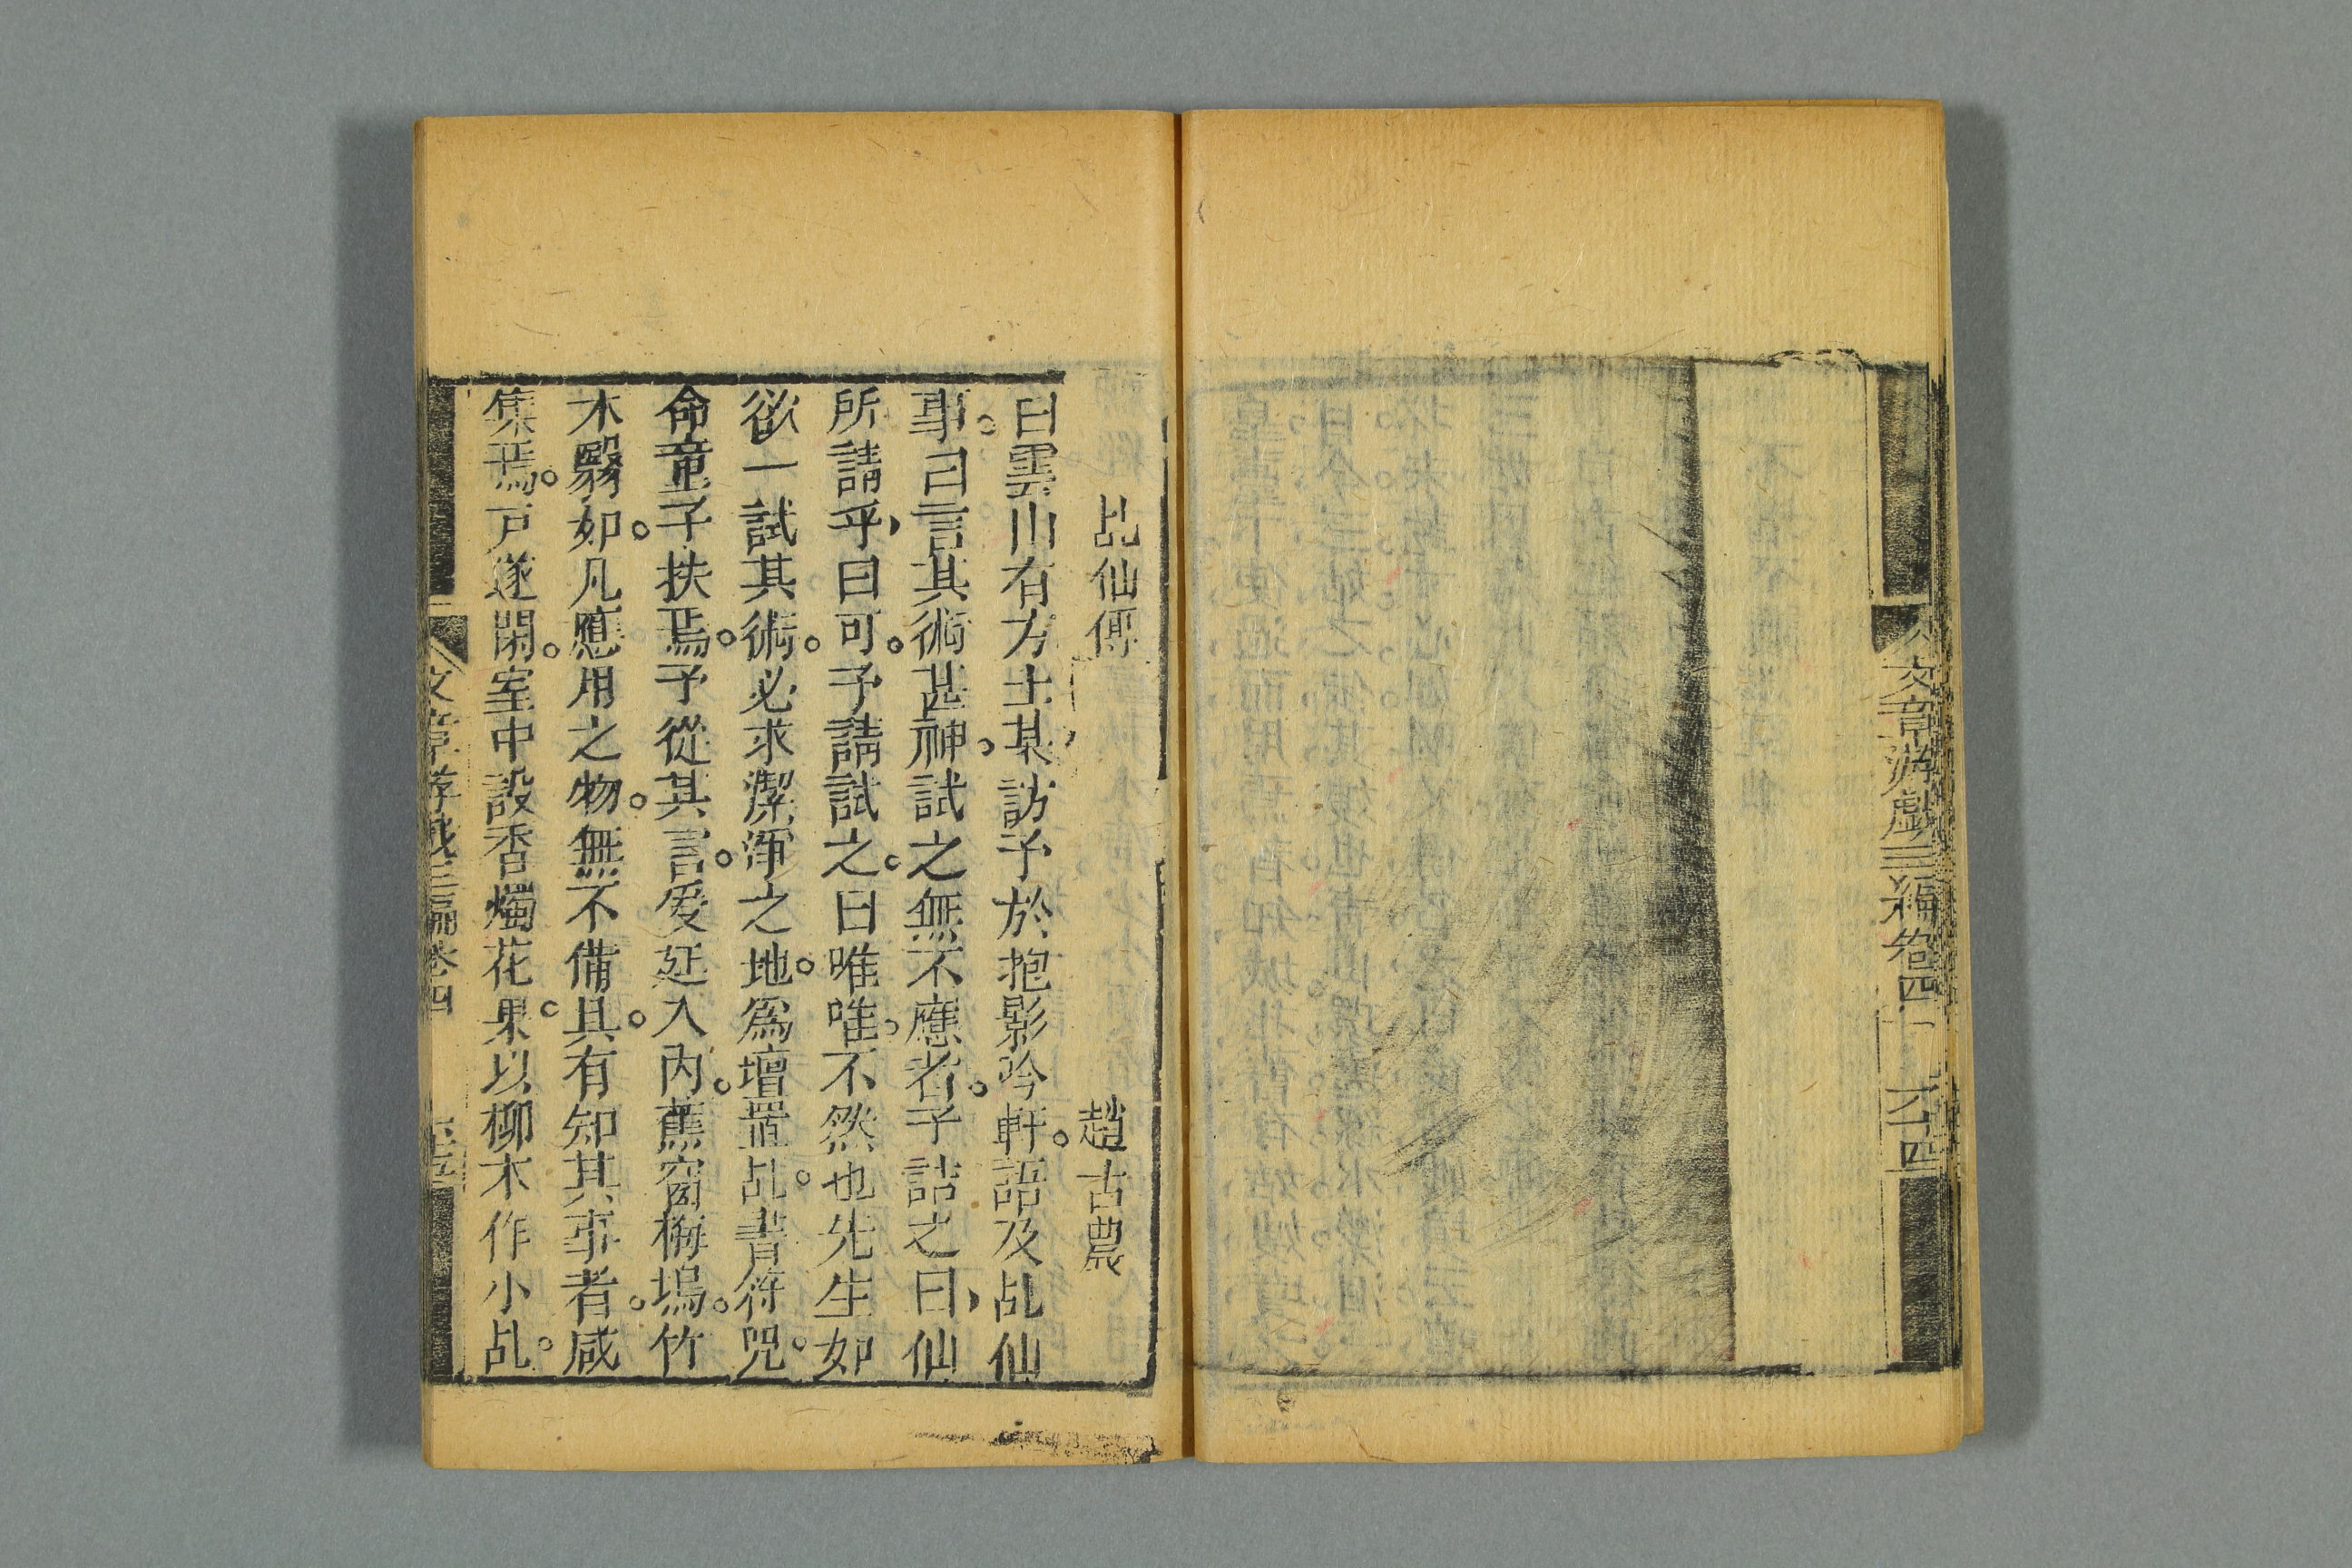 文章游戲三編卷四
六十四
乩仙傳
趙古農
白雲山有方士某訪予於抱影吟軒語及乩仙
事自言其術甚神試之無不應者予詰之曰仙
所請乎曰可予請試之曰唯唯不然也先生如
欲一試其術必求潔淨之地爲壇置乩書符咒
命童子扶焉予從其言爰延入內蕉窗梅塢竹
木翳如凡應用之物無不備具有知其事者咸
集焉戶遂閉室中設香燭花果以柳木作小乩
文章游戲三編卷四